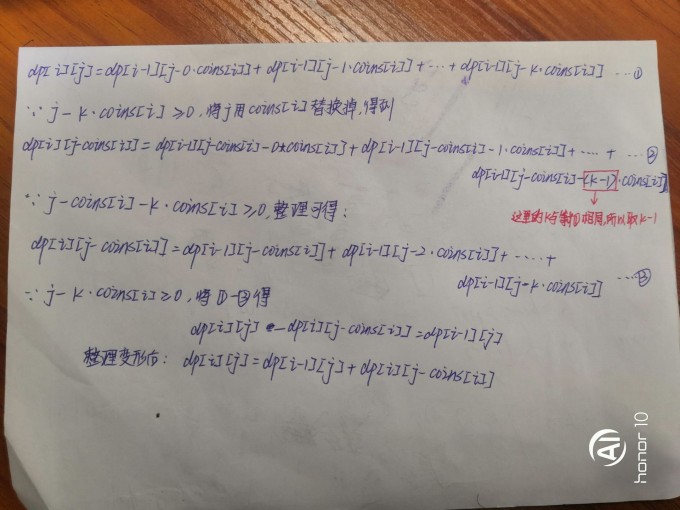 dp[i][j]=dp[i-1][j-0·coins[i]]+dp[i-1][j-1·coins[i]]+···+dp[i-1][j-k·coins[i]] ···①
∵ j-k·coins[i]≥0,将j用coins[i]替换掉,得到
dp[i][j-coins[i]]=dp[i-1][j-coins[i]-0*coins[i]]+dp[i-1][j-coins[i]-1·coins[i]]+····+ ···②
dp[i-1][j-coins[i]-(k-1)·coins[i]]
∵ j-coins[i]-k·coins[i]≥0,整理可得:
这里的k与①相同,所以取k-1
dp[i][j-coins[i]]=dp[i-1][j-coins[i]]+dp[i-1][j-2·coins[i]]+····+
dp[i-1][j-k·coins[i]] ···③
∵ j-k·coins[i]≥0,将①-③得
dp[i][j]-dp[i][j-coins[i]]=dp[i-1][j]
整理变形后: dp[i][j]=dp[i-1][j]+dp[i][j-coins[i]]
AI
honor 10